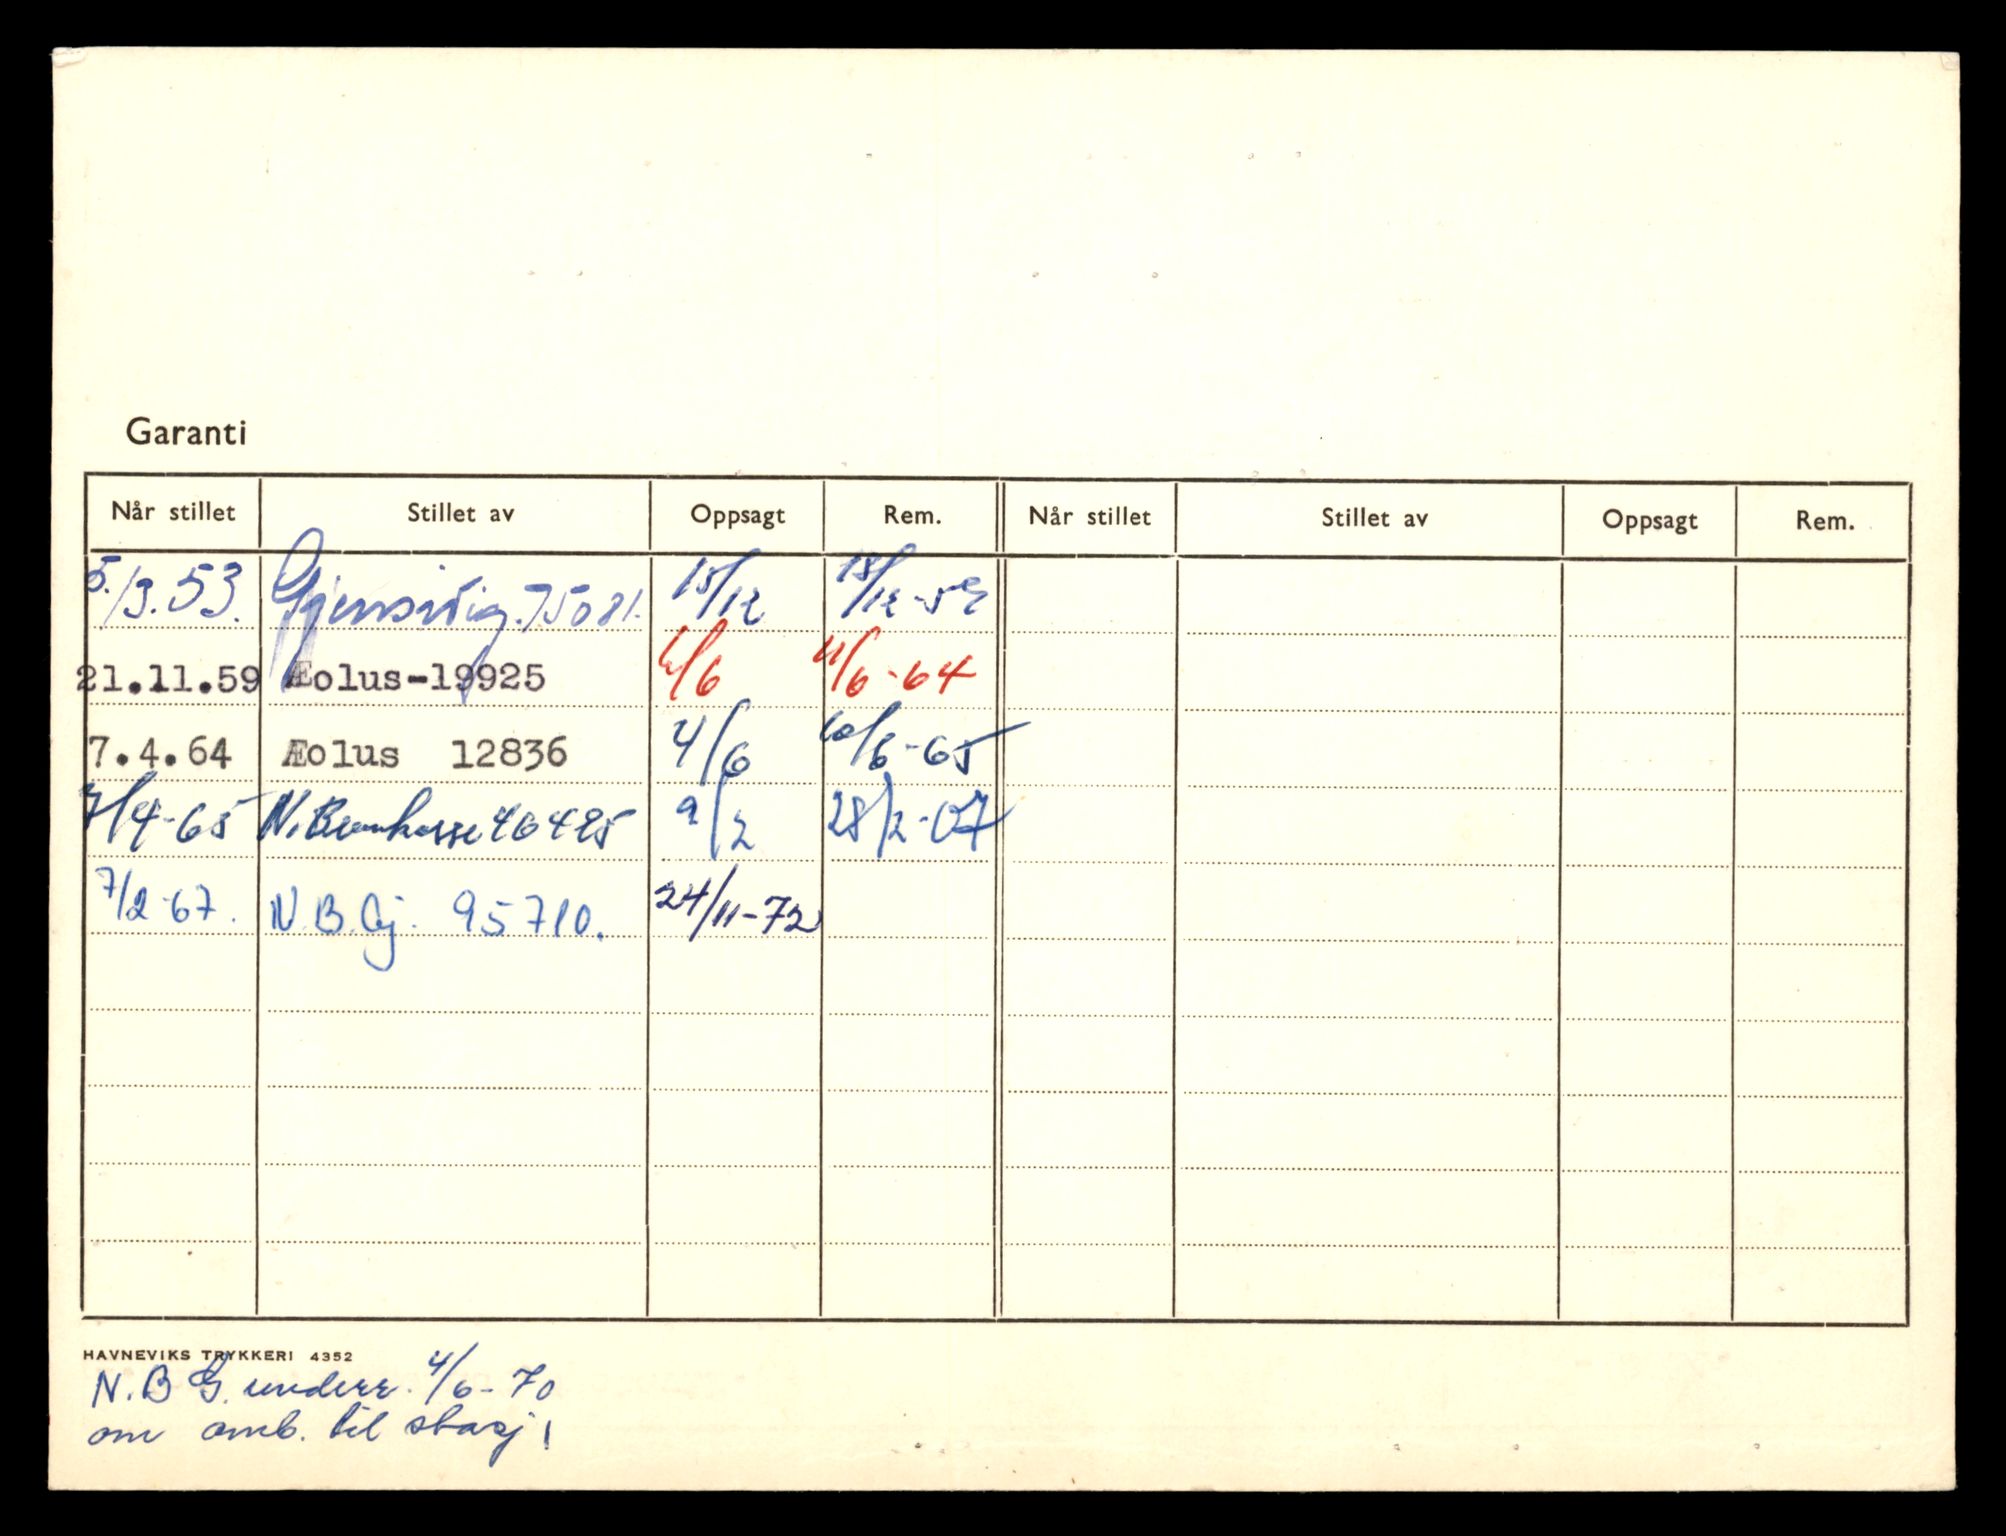 Garanti
Når stillet Stillet av Oppsagt Rem. Når stillet Stillet av Oppsagt Rem.
5./3.53. Gjensidig.75081. 15/12 18/12-59
21.11.59 Æolus-19925 4/6 11/6-64
7.4.64 Æolus 12836 4/6 10/6-65
7/4-65 N. 46495 9/2 28/2-67
7/2-67. N.B.Gj. 95710. 24/11-72
HAVNEVIKS TRYKKERI 4352
N.B G. underr. 4/6-70
om omb. til stasj!